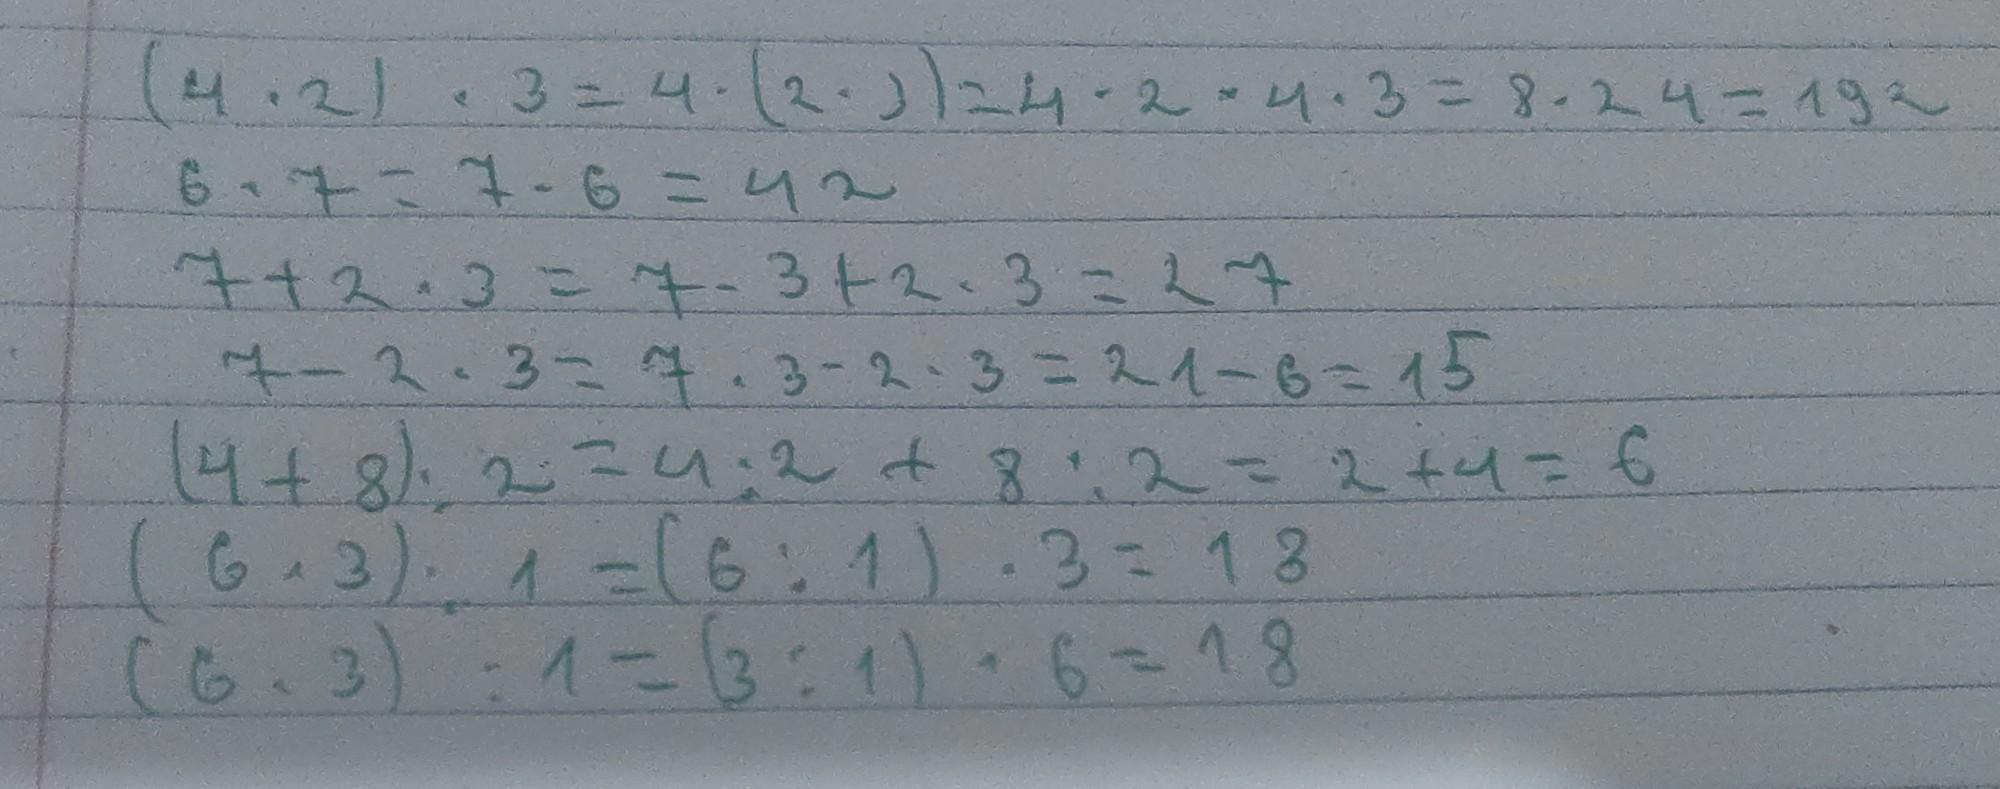 (4 · 2) · 3 = 4 · (2 · 3) = 4 · 2 · 4 · 3 = 8 · 24 = 192
6 · 7 = 7 · 6 = 42
7 + 2 · 3 = 7 · 3 + 2 · 3 = 27
7 - 2 · 3 = 7 · 3 - 2 · 3 = 21 - 6 = 15
(4 + 8) : 2 = 4 : 2 + 8 : 2 = 2 + 4 = 6
(6 · 3) : 1 = (6 : 1) · 3 = 18
(6 · 3) : 1 = (3 : 1) · 6 = 18